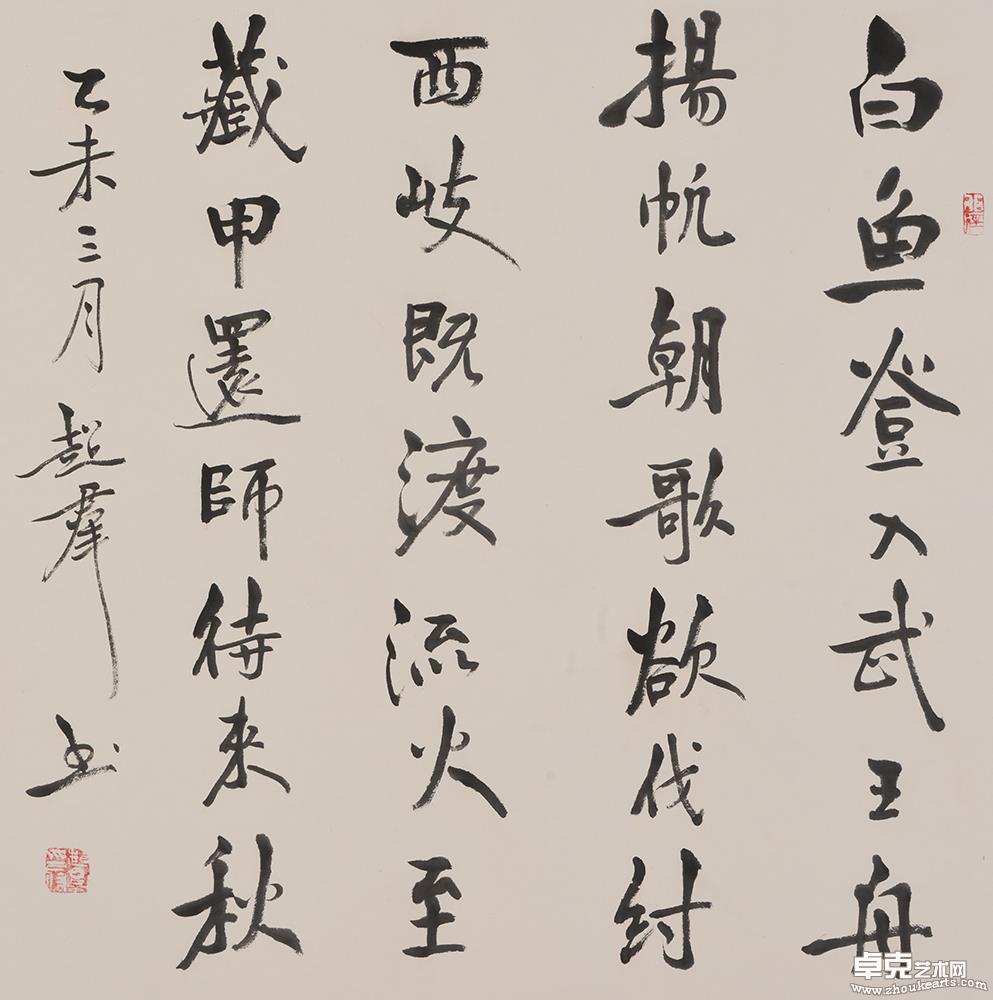 白鱼登入武王舟
揚帆朝歌欲伐纣
西岐既渡流火至
藏甲還師待来秋
乙未三月超群书
卓克艺术网
www.zhoukearts.com